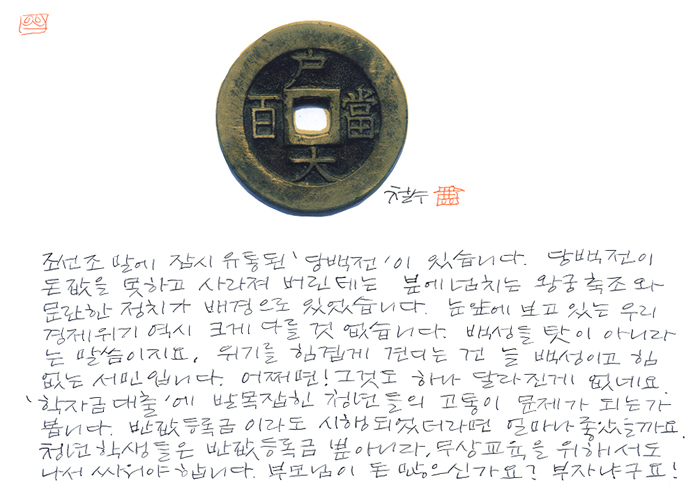 戶
百 當
大
철수
조선조 말에 잠시 유통된 '당백전'이 있습니다. 당백전이
돈값을 못하고 사라져 버린데는 분에넘치는 왕궁 축조와
문란한 정치가 배경으로 있었습니다. 눈앞에 보고 있는 우리
경제위기 역시 크게 다를 것 없습니다. 백성들 탓이 아니라
는 말씀이지요. 위기를 힘겹게 견디는 건 늘 백성이고 힘
없는 서민입니다. 어쩌면! 그것도 하나 달라진게 없네요.
'학자금대출'에 발목잡힌 청년들의 고통이 문제가 되는가
봅니다. 반값등록금이라도 시행되었더라면 얼마나 좋았을까요.
청년학생들은 반값등록금 뿐아니라, 무상교육을 위해서도
나서 싸워야합니다. 부모님이 돈 많으신가요? 부자냐구요!